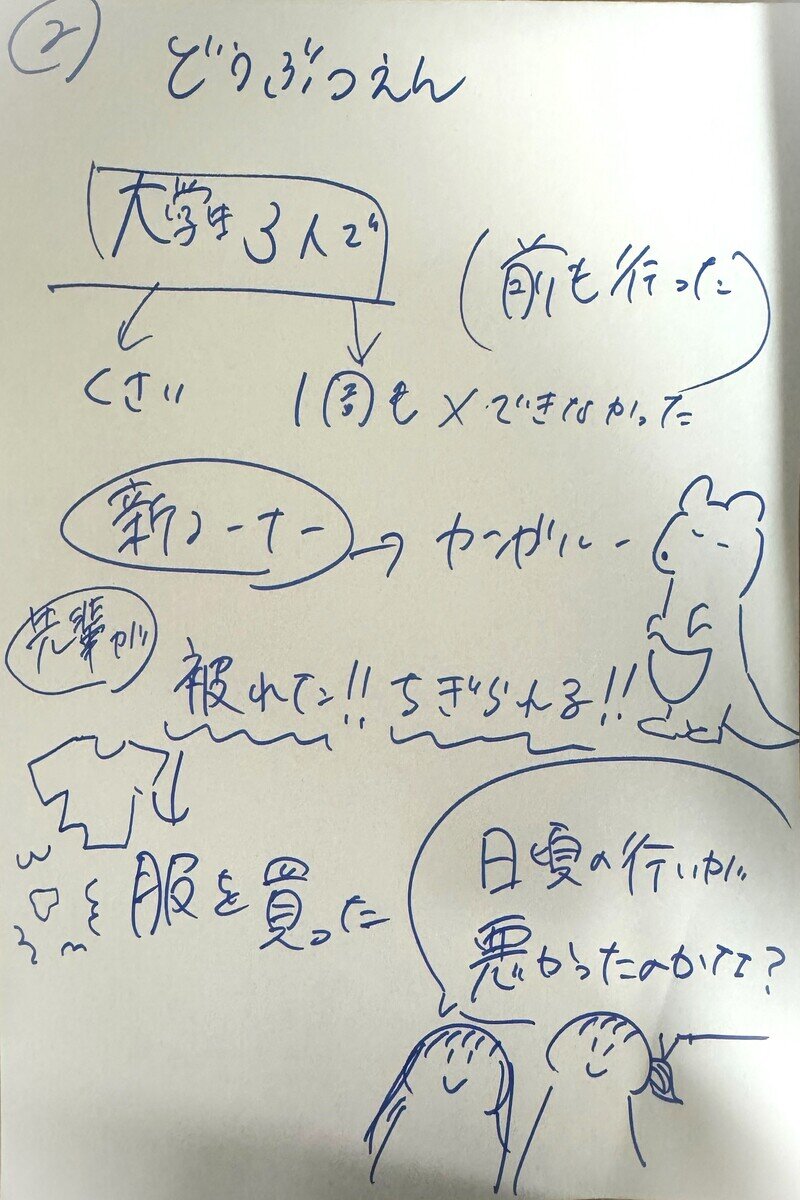 ②
どうぶつえん
大学生3人で
(前も行った)
くさい
1周も×できなかった
新コーナー→カンガルー
先輩が
被れた!!ちぎられる!!
服を買った
日頃の行いが
悪かったのかな?